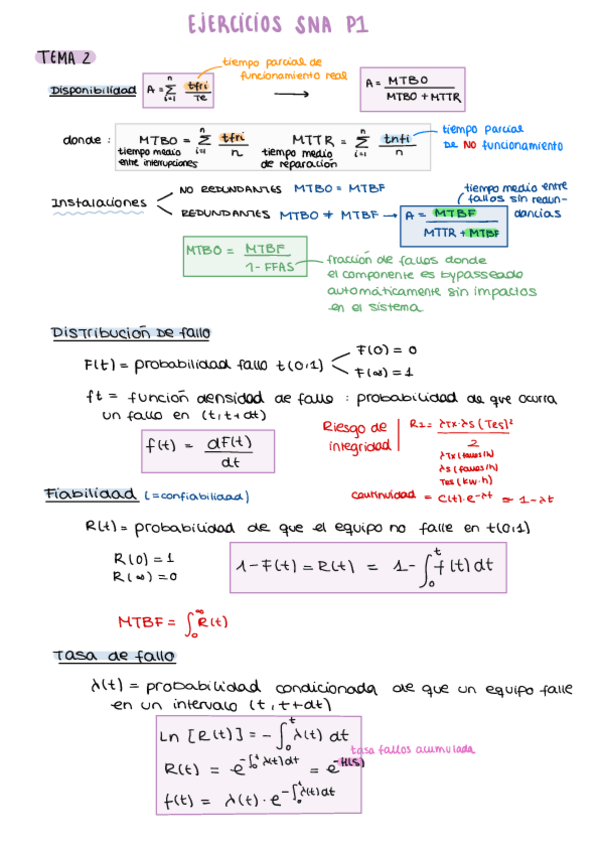 EJERCICIOS SNA P1
TEMA 2
Disponibilidad A = Σ_{i=1}^{n} tfri/Te → A = MTBO / MTBO + MTTR
tiempo parcial de funcionamiento real
donde : MTBO = Σ_{i=1}^{n} tfri/n MTTR = Σ_{i=1}^{n} tnfi/n
tiempo medio entre interrupciones
tiempo medio de reparación
tiempo parcial DE NO funcionamiento
Instalaciones
NO REDUNDANTES MTBO = MTBF
REDUNDANTES MTBO ≠ MTBF → A = MTBF / MTTR + MTBF
tiempo medio entre fallos sin redundancias
MTBO = MTBF / 1-FFAS
fracción de fallos donde
el componente es bypasseado
automáticamente sin impactos
en el sistema
Distribución de fallo
F(t) = probabilidad fallo t(0,1)
F(0) = 0
F(∞) = 1
ft = función densidad de fallo : probabilidad de que ocurra
un fallo en (t, t+dt)
f(t) = dF(t)/dt
Riesgo de integridad
R1 = λTx·λS (Tes)² / 2
λTx (fallos/h)
λS (fallos/h)
Tes (kw.h)
continuidad = C(t)·e^-λt ≈ 1-λt
Fiabilidad (=confiabilidad)
R(t) = probabilidad de que el equipo no falle en t(0,1)
R(0) = 1
R(∞) = 0
1-F(t) = R(t) = 1- ∫₀ᵗ f(t) dt
MTBF = ∫₀^∞ R(t)
Tasa de fallo
λ(t) = probabilidad condicionada de que un equipo falle
en un intervalo (t, t+dt)
Ln [R(t)] = - ∫₀ᵗ λ(t) dt
R(t) = e^{-∫₀ᵗ λ(t)dt} = e^{-H(s)}
tasa fallos acumulada
f(t) = λ(t)·e^{-∫₀ᵗ λ(t)dt}